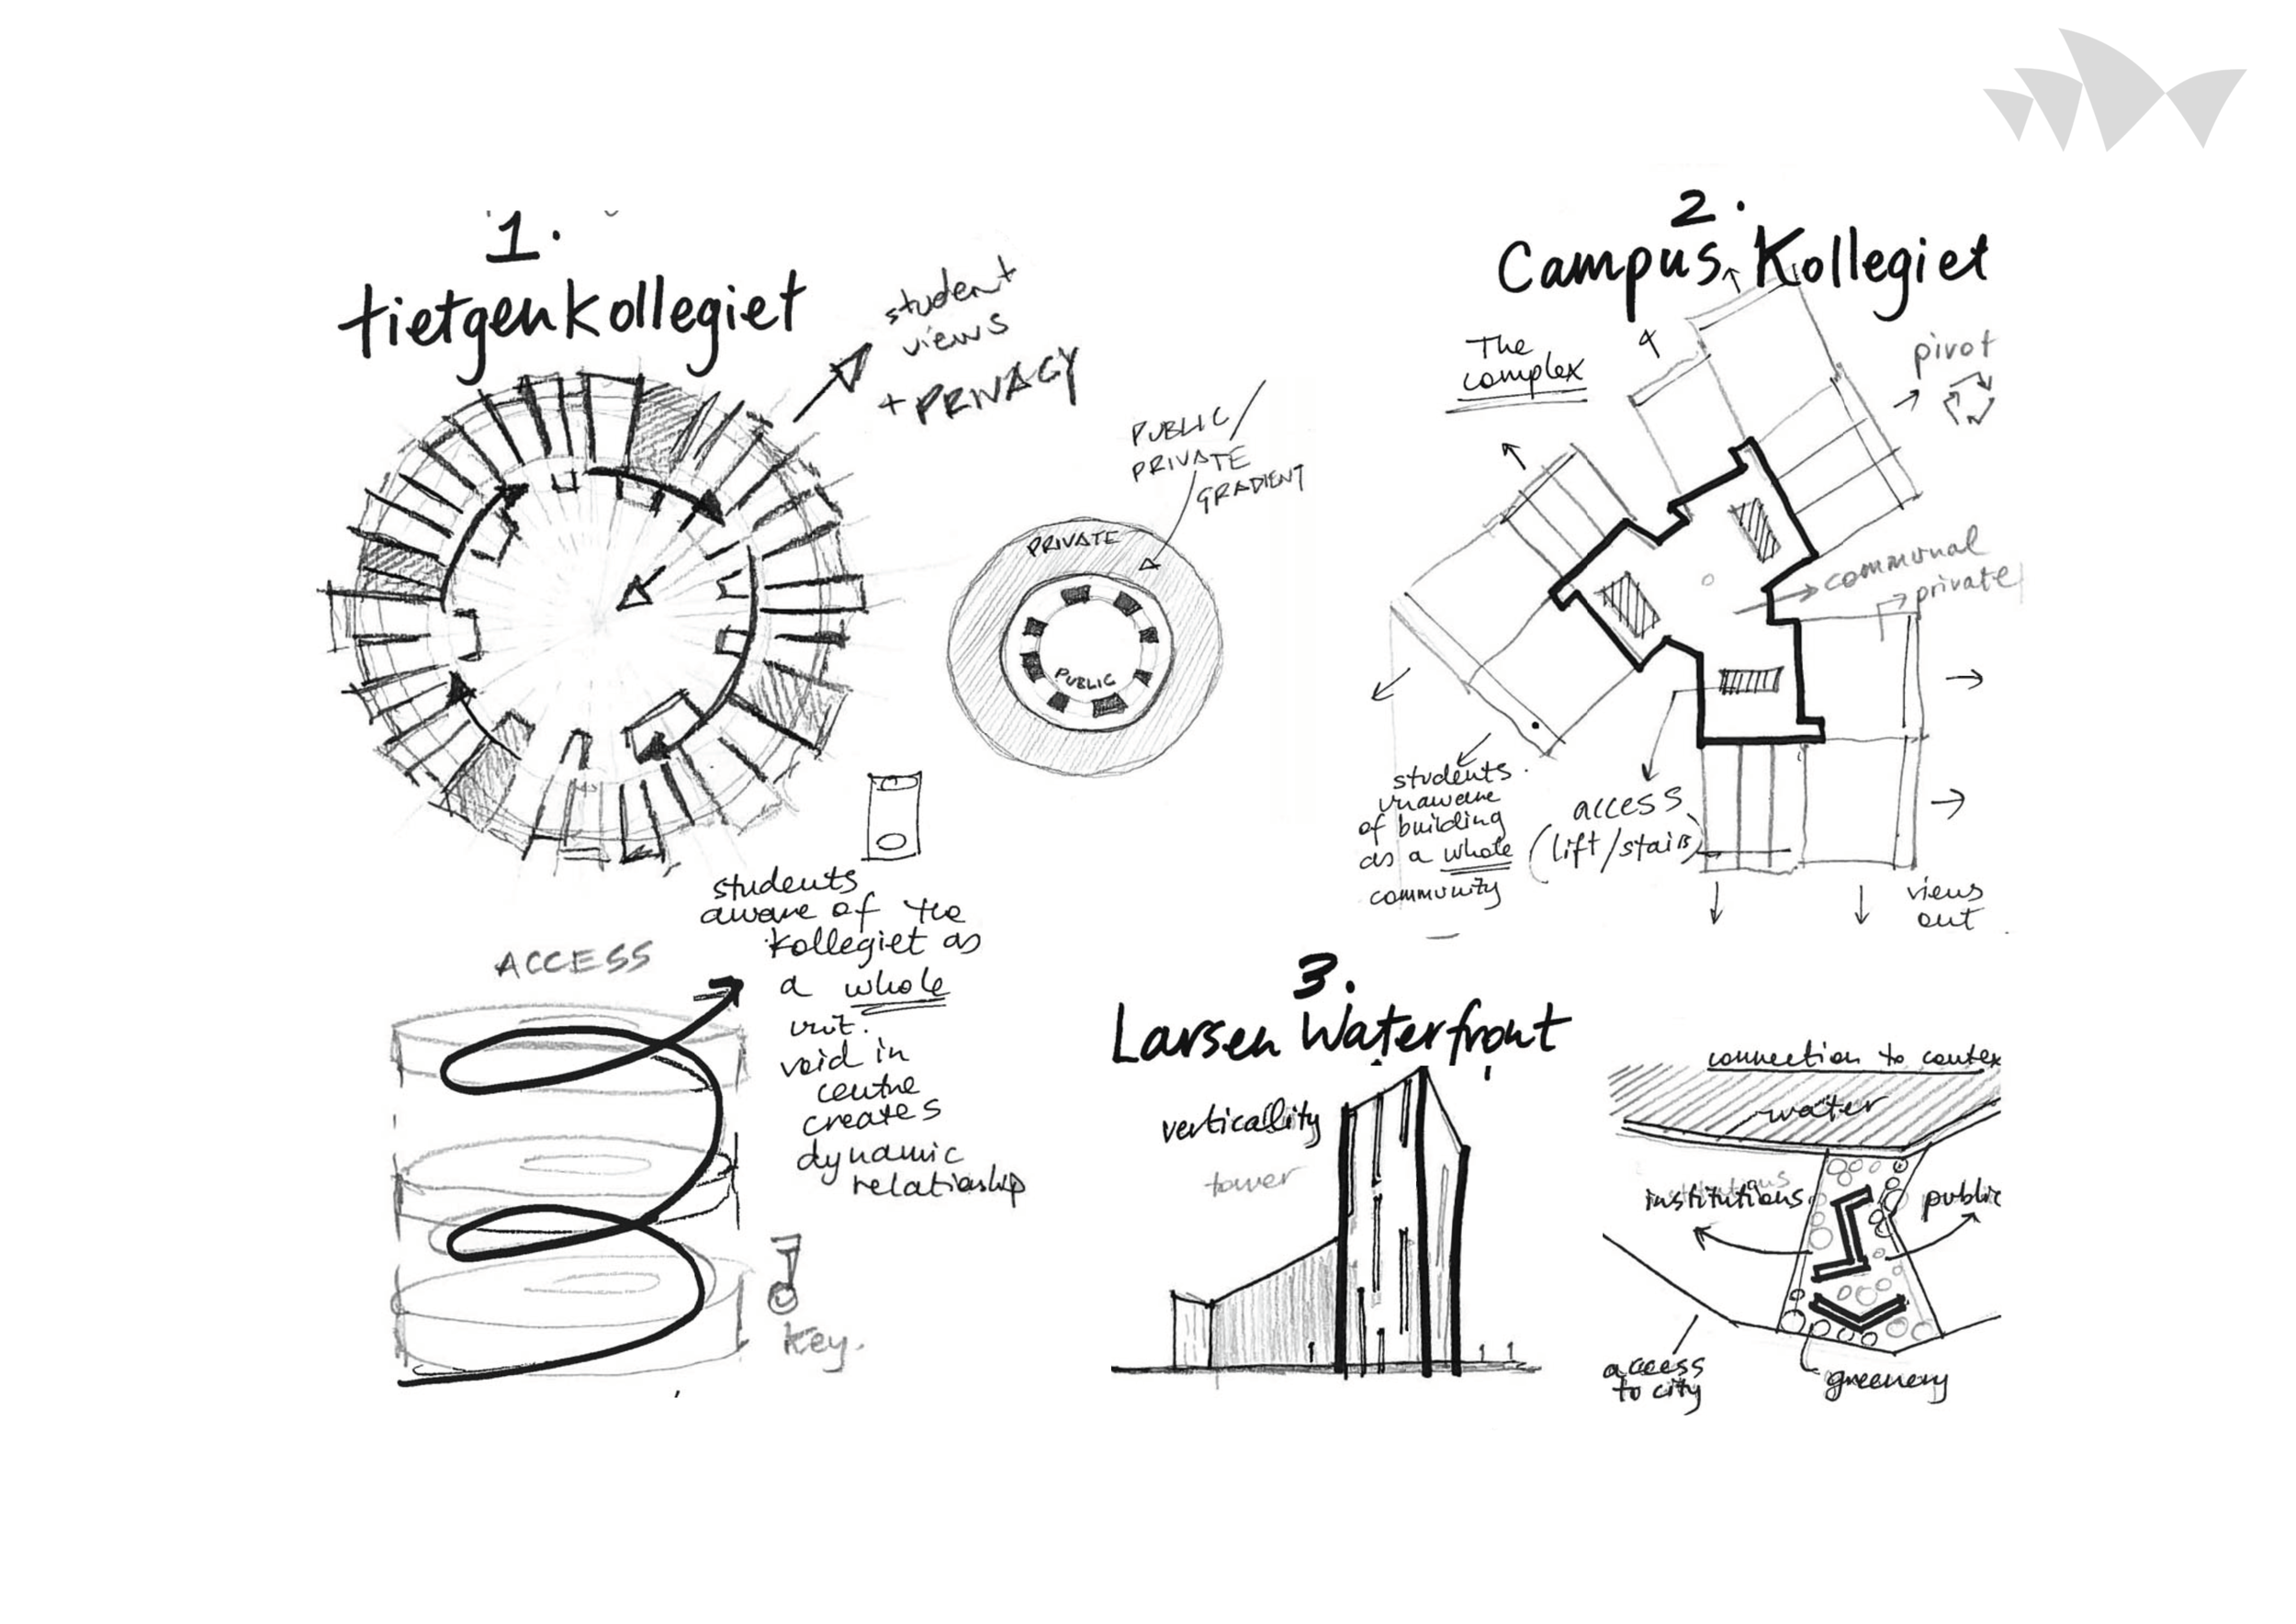 1.
tietgenkollegiet
student
views
+ PRIVACY
PUBLIC/
PRIVATE
GRADIENT
PRIVATE
PUBLIC
students
aware of the
kollegiet as
a whole
unit.
void in
centre
creates
dynamic
relationship
ACCESS
key.
2.
Campus Kollegiet
The
complex
pivot
communal
private
students
unaware
of building
as a whole
community
access
(lift/stairs)
views
out
3.
Larsen Waterfront
verticallity
tower
connection to contex
water
institutions
public
access
to city
greenery